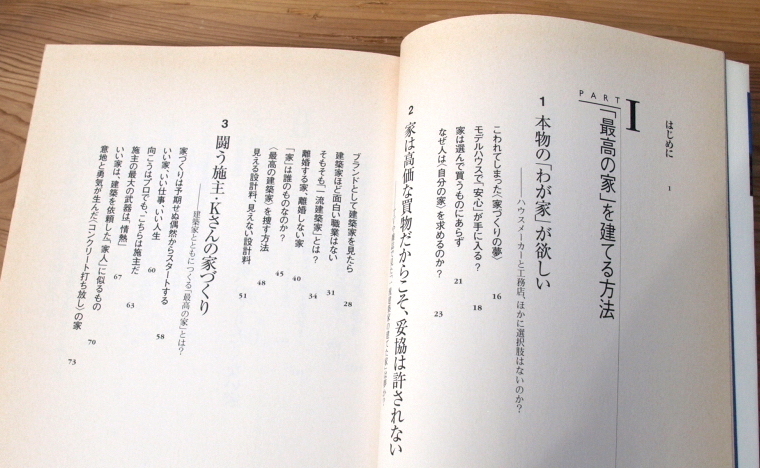 はじめに 1
PART
I
「最高の家」を建てる方法
1 本物の「わが家」が欲しい
——ハウスメーカーと工務店、ほかに選択肢はないのか?
こわれてしまった〈家づくりの夢〉 16
モデルハウスで「安心」が手に入る? 18
家は選んで買うものにあらず 21
なぜ人は〈自分の家〉を求めるのか? 23
2 家は高価な買物だからこそ、妥協は許されない
ブランドとして建築家を見たら 28
建築家ほど面白い職業はない 31
そもそも「一流建築家」とは? 34
離婚する家、離婚しない家 40
「家」は誰のものなのか? 45
〈最高の建築家〉を捜す方法 48
見える設計料、見えない設計料 51
3 闘う施主・Kさんの家づくり
——建築家とともにつくる「最高の家」とは?
家づくりは予期せぬ偶然からスタートする 58
いい家、いい仕事、いい人生 60
向こうはプロでも、こちらは施主だ 63
施主の最大の武器は、〝情熱〟 67
いい家は、建築を依頼した〝家人〟に似るもの 70
意地と勇気が生んだ〈コンクリート打ち放し〉の家 73